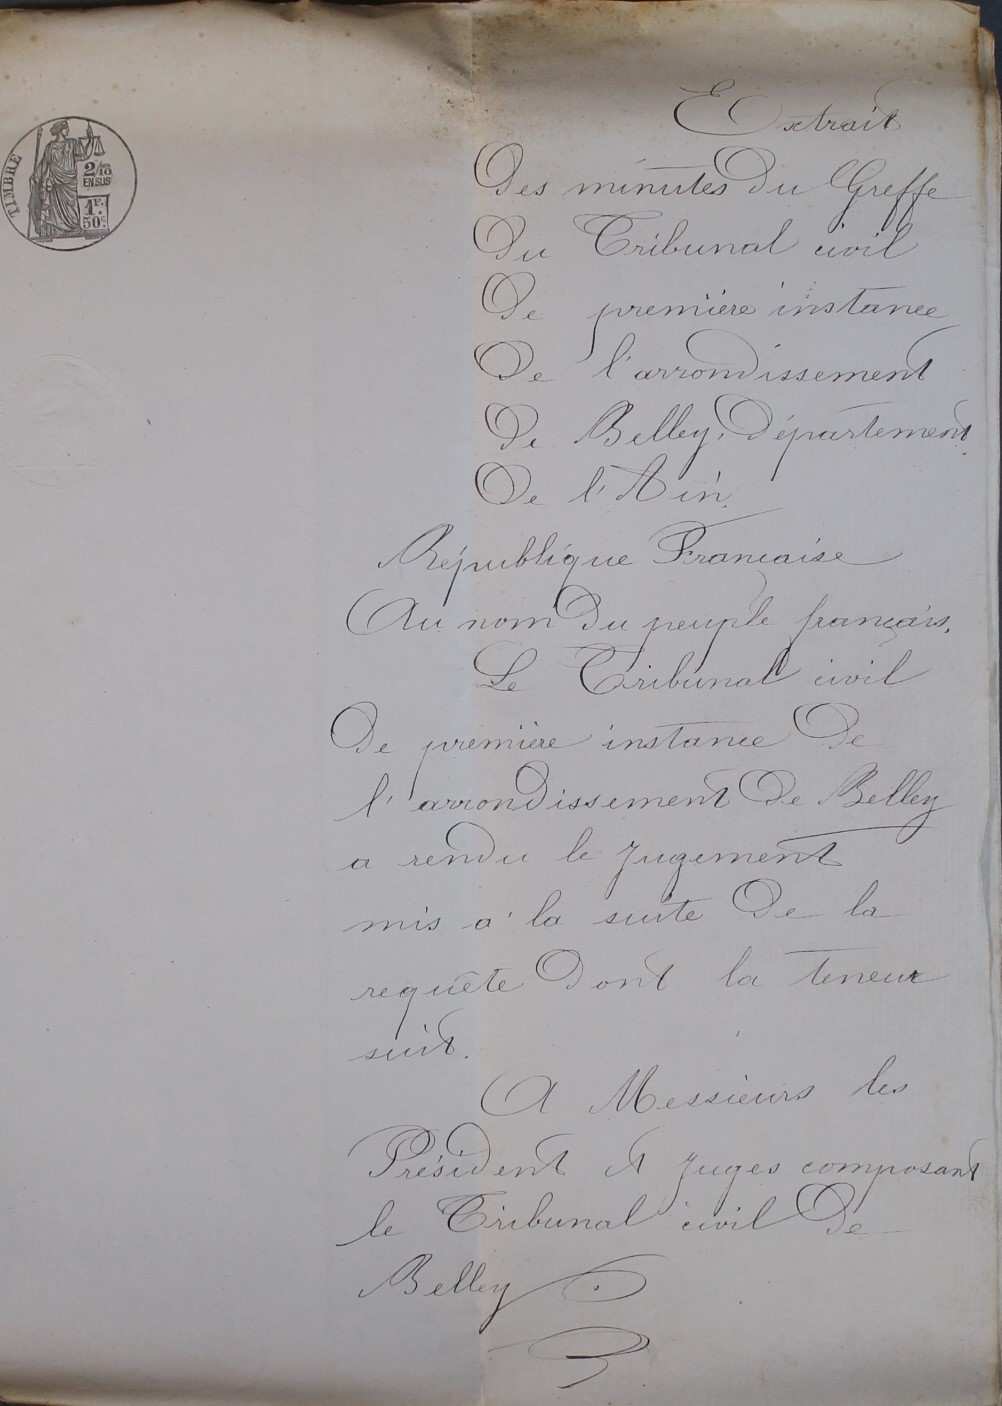 TIMBRE
2/10
EN SUS
1F.
50c.
Extrait
Des minutes Du Greffe
Du Tribunal civil
De première instance
De l'arrondissement
De Belley, Département
De l'Ain.
République Francaise
Au nom Du peuple français.
Le Tribunal civil
De première instance De
l'arrondissement De Belley
a rendu le Jugement
mis à la suite De la
requête Dont la teneur
suit.
A Messieurs les
Président et Juges composant
le Tribunal civil De
Belley